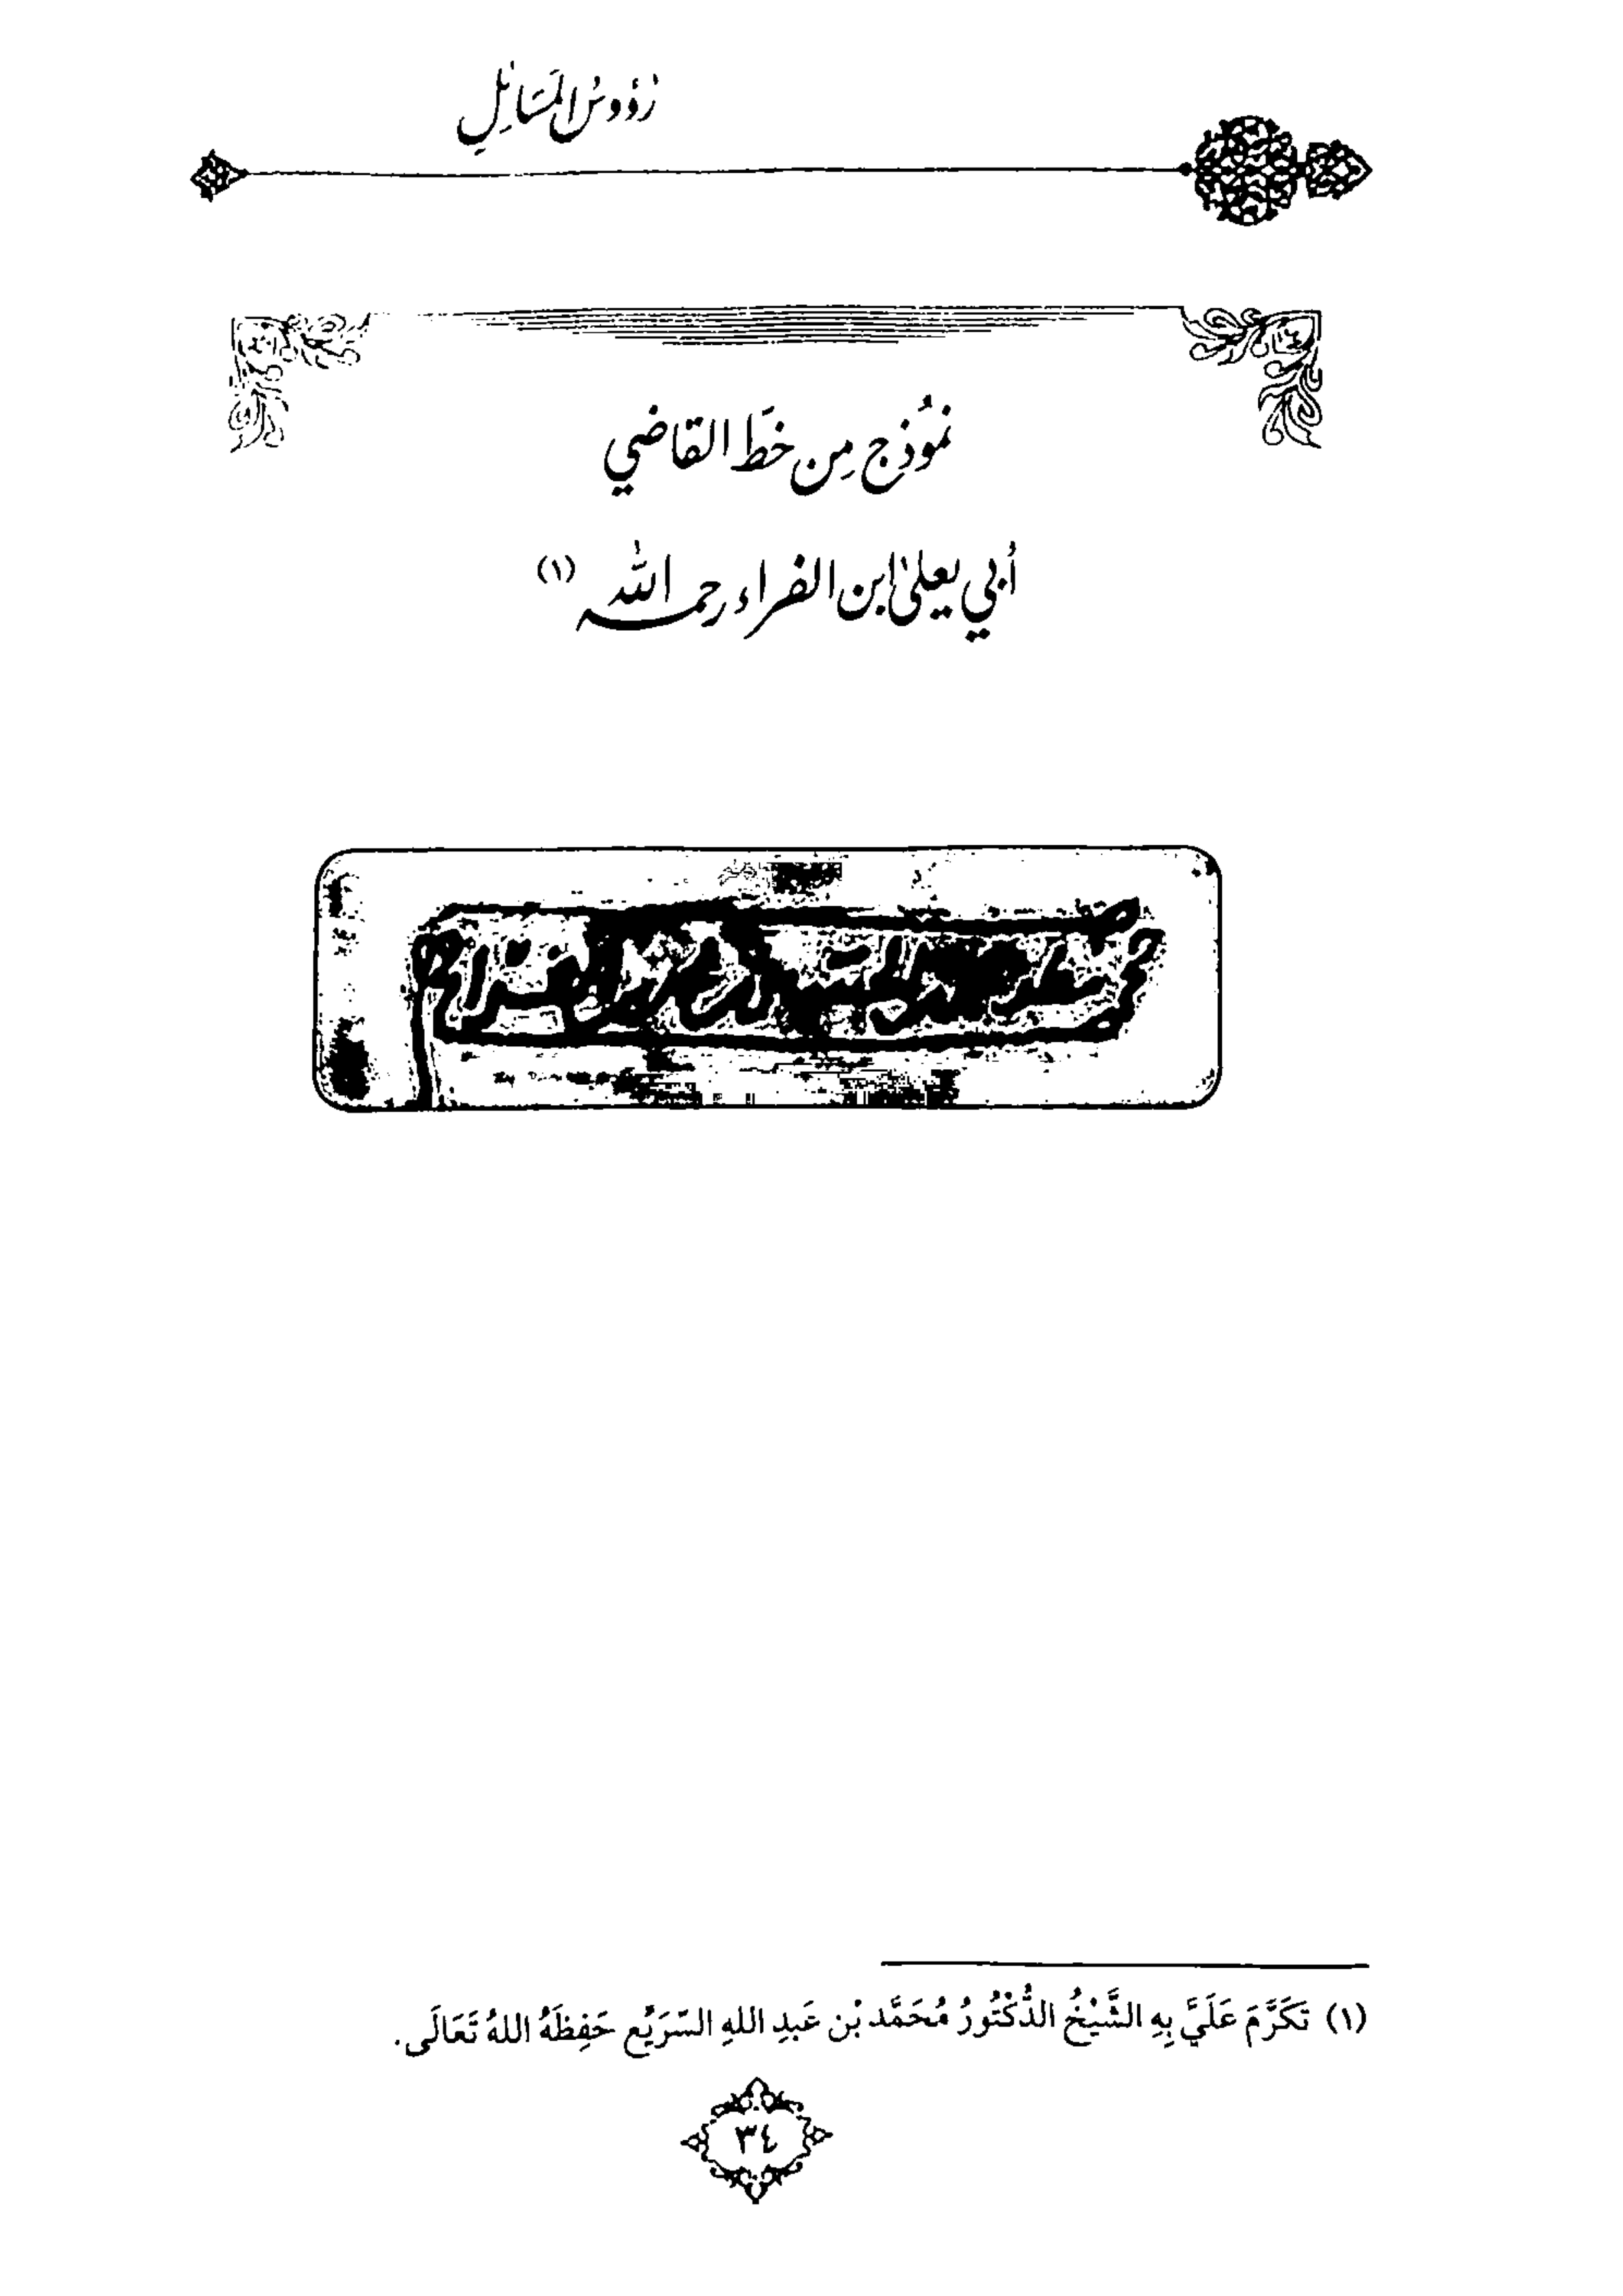 رُؤُوسُ المَسَائِلِ
نمُوذِج مِن خَط القاضي
أُبي يعلىٰ ابن الفراء رحمـه الله (١)
(١) تَكَرَّمَ عَلَيَّ بِهِ الشَّيْخُ الدُّكْتُورُ مُحَمَّد بْن عَبدِ اللهِ السّرَيِّع حَفِظَهُ اللهُ تَعَالَى.
٣٤